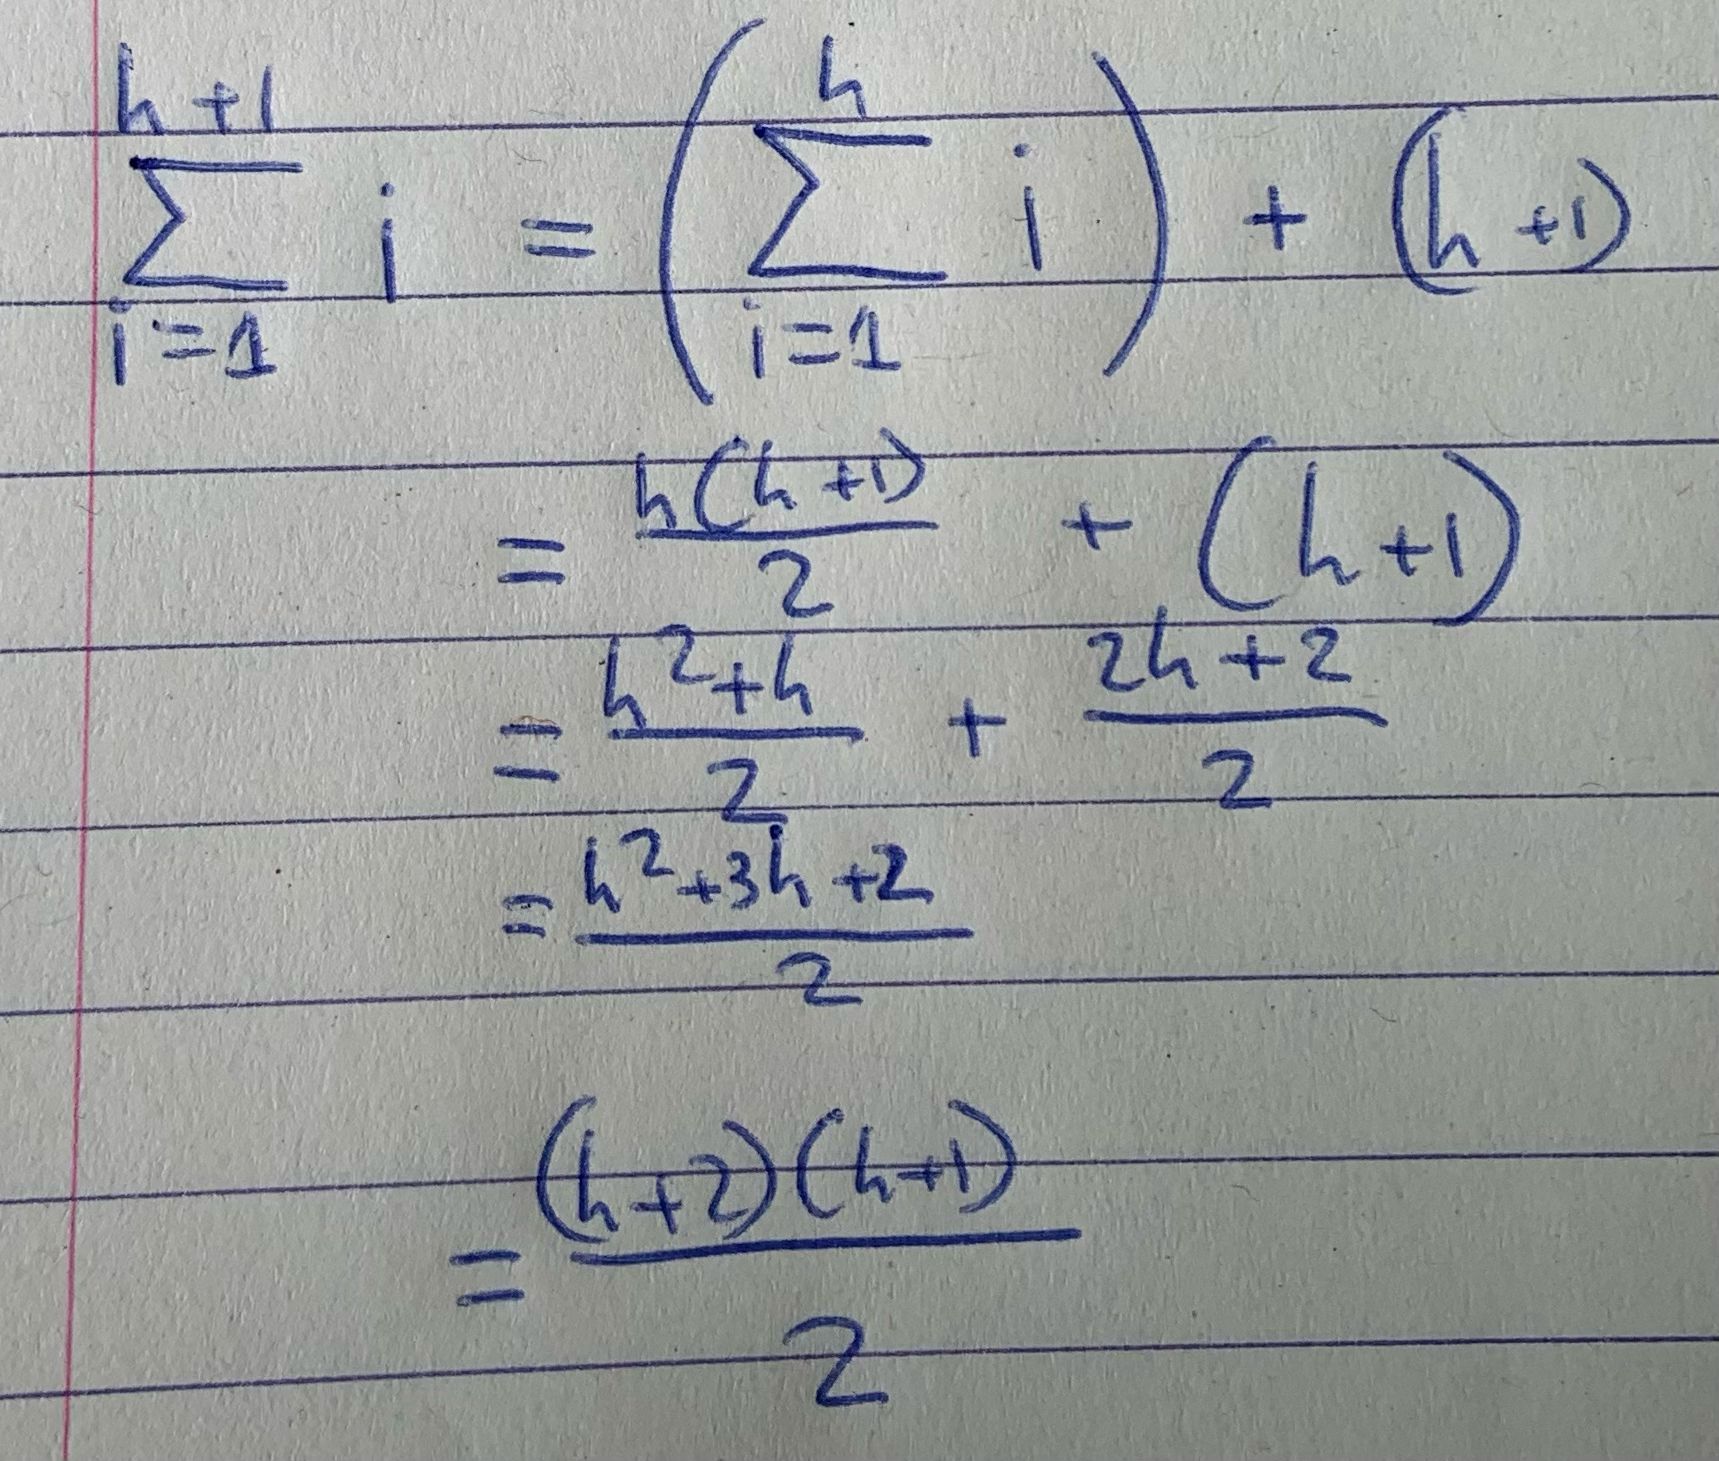 \sum_{i=1}^{h+1} i = \left( \sum_{i=1}^{h} i \right) + (h+1)
= \frac{h(h+1)}{2} + (h+1)
= \frac{h^2+h}{2} + \frac{2h+2}{2}
= \frac{h^2+3h+2}{2}
= \frac{(h+2)(h+1)}{2}